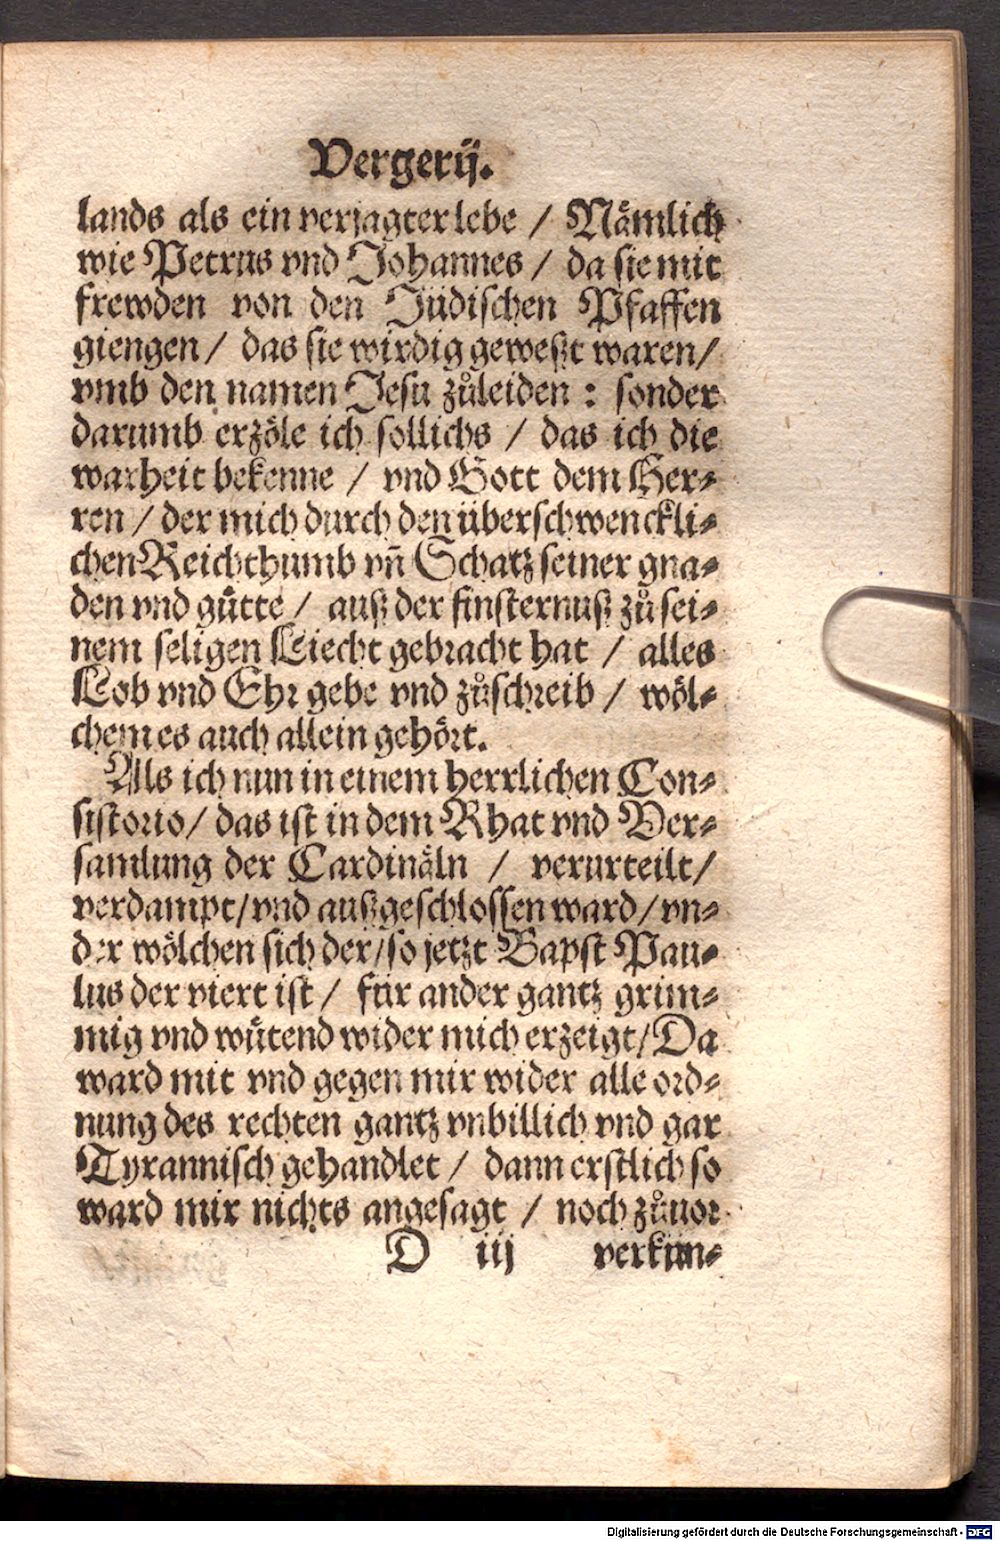 Vergerij.
lands als ein verjagter lebe / Nämlich
wie Petrus vnd Johannes / da sie mit
frewden von den Jüdischen Pfaffen
giengen / das sie wirdig geweßt waren /
vmb den namen Jesu zůleiden : sonder
darumb erzöle ich sollichs / das ich die
warheit bekenne / vnd Gott dem Her⸗
ren / der mich durch den überschwenckli⸗
chen Reichthumb vñ Schatz seiner gna⸗
den vnd gütte / auß der finsternuß zů sei⸗
nem seligen Liecht gebracht hat / alles
Lob vnd Ehr gebe vnd zůschreib / wöl⸗
chem es auch allein gehört.
Als ich nun in einem herrlichen Con⸗
sistorio / das ist in dem Rhat vnd Ver⸗
samlung der Cardinäln / verurteilt /
verdampt / vnd außgeschlossen ward / vn⸗
der wölchen sich der / so jetzt Bapst Pau⸗
lus der viert ist / für ander gantz grim⸗
mig vnd wütend wider mich erzeigt / Da
ward mit vnd gegen mir wider alle ord⸗
nung des rechten gantz vnbillich vnd gar
Tyrannisch gehandlet / dann erstlich so
ward mir nichts angesagt / noch zůuor
D iij verkün⸗
Digitalisierung gefördert durch die Deutsche Forschungsgemeinschaft - DFG